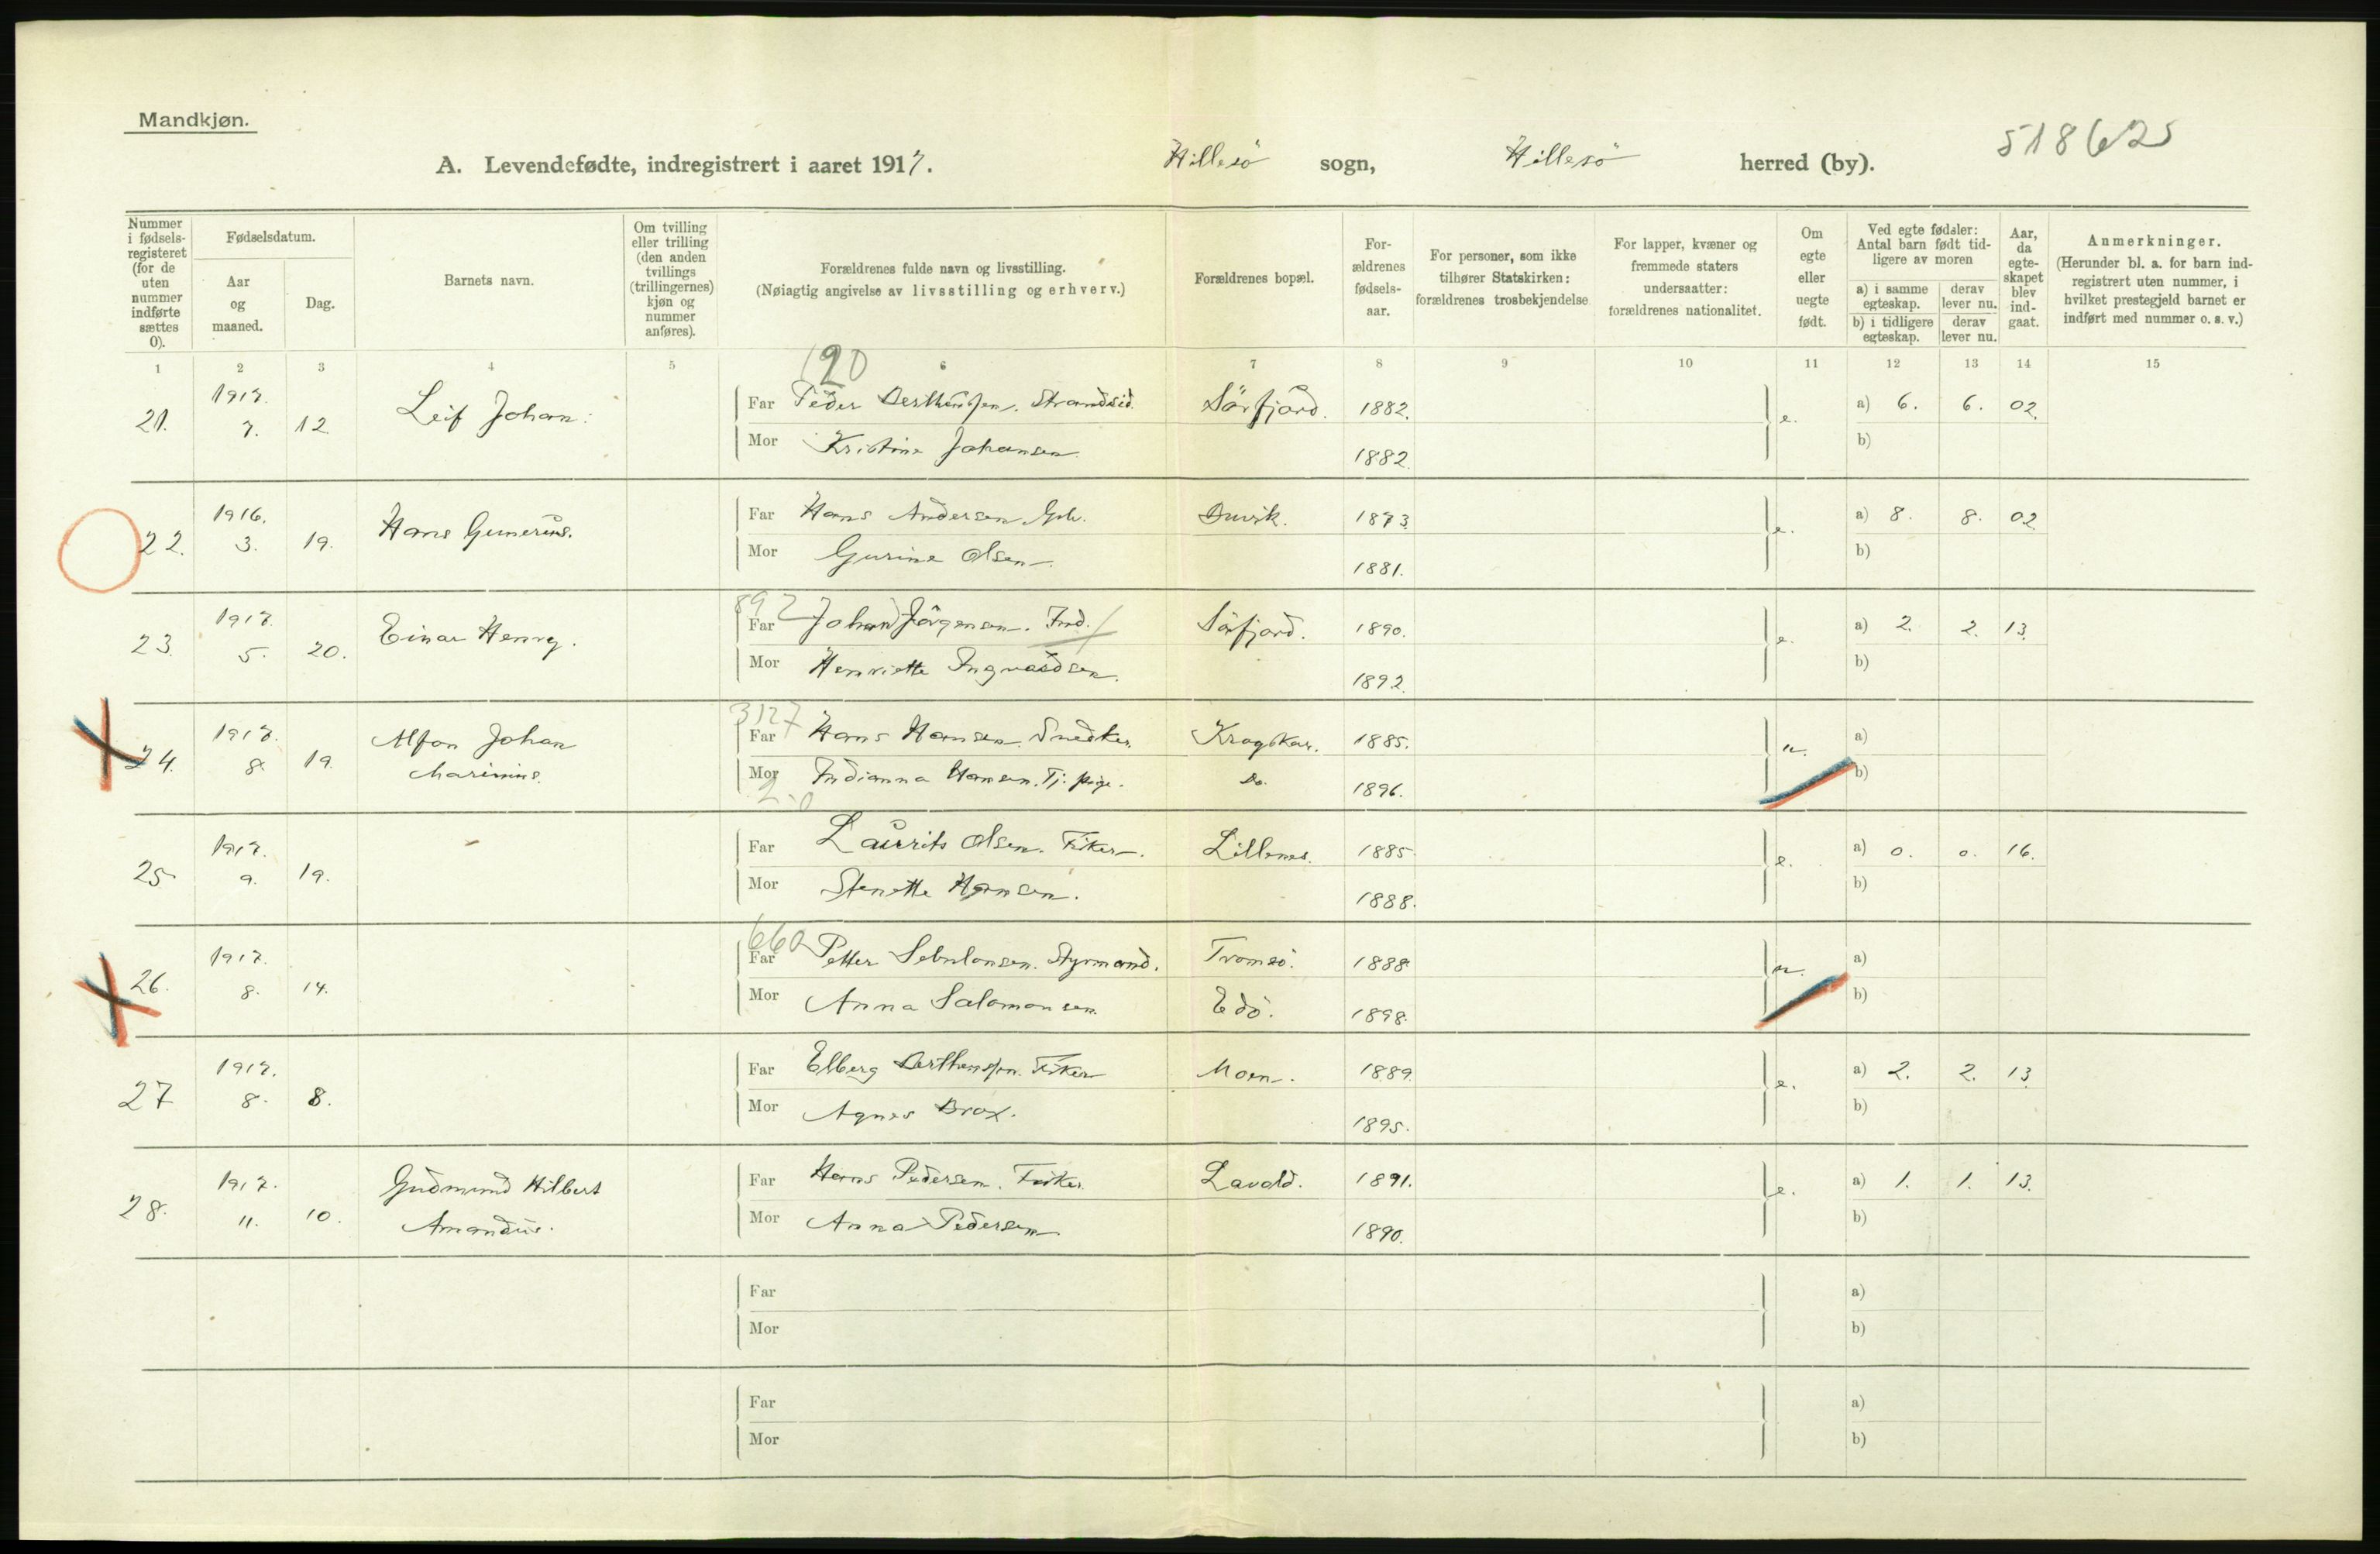 Mandkjøn.
518625
A. Levendefødte, indregistrert i aaret 1917. Hillesö sogn, Hillesö herred (by).
Nummer i fødsels-registeret (for de uten nummer indførte sættes 0).
Fødselsdatum.
Aar og maaned.
Dag.
Barnets navn.
Om tvilling eller trilling (den anden tvillings (trillingernes) kjøn og nummer anføres).
Forældrenes fulde navn og livsstilling.
(Nøiagtig angivelse av livsstilling og erhverv.)
Forældrenes bopæl.
For-ældrenes fødsels-aar.
For personer, som ikke tilhører Statskirken: forældrenes trosbekjendelse
For lapper, kvæner og fremmede staters undersaatter: forældrenes nationalitet.
Om egte eller uegte født.
Ved egte fødsler: Antal barn født tid-ligere av moren
a) i samme egteskap. derav lever nu.
b) i tidligere egteskap. derav lever nu.
Aar, da egte-skapet blev ind-gaat.
Anmerkninger.
(Herunder bl. a. for barn ind-registrert uten nummer, i hvilket prestegjeld barnet er indført med nummer o. s. v.)
1 2 3 4 5 6 7 8 9 10 11 12 13 14 15
120
21. 1917. 7. 12. Leif Johan. Far Peder Berthensen. Strandsid. Sörfjord. 1882. e. a) 6. 6. 02.
Mor Kristine Johansen. 1882. b)
22. 1916. 3. 19. Hans Gunerius. Far Hans Andersen Gbr. Buvik. 1873. e. a) 8. 8. 02
Mor Gurine Olsen. 1881. b)
892
23. 1917. 5. 20. Einar Henry. Far Johan Jörgensen. Ind. Sörfjord. 1890. e. a) 2. 2. 13.
Mor Henriette Ingvardsen. 1892. b)
3127
24. 1917. 8. 19. Alfon Johan Far Hans Hansen. Snedker. Kragskar. 1885. u. a)
Marinius. Mor Indianna Hansen. Tj. pige. Do. 1896. b)
2.0
25 1917. 9. 19. Far Laurits Olsen. Fisker. Lillenes. 1885. e. a) 0. 0. 16.
Mor Stenette Hansen. 1888. b)
660
26. 1917. 8. 14. Far Petter Sebulonsen. Styrmand. Tromsö. 1888. u. a)
Mor Anna Salomonsen. Edö. 1898. b)
27 1917. 8. 8. Far Elberg Berthensen. Fisker Moen. 1889. e. a) 2. 2. 13.
Mor Agnes Brox. 1895. b)
28. 1917. 11. 10. Gudmund Hilbert Far Hans Pedersen. Fisker. Lavold. 1891. e. a) 1. 1. 13.
Amandus. Mor Anna Pedersen 1890. b)
Far a)
Mor b)
Far a)
Mor b)